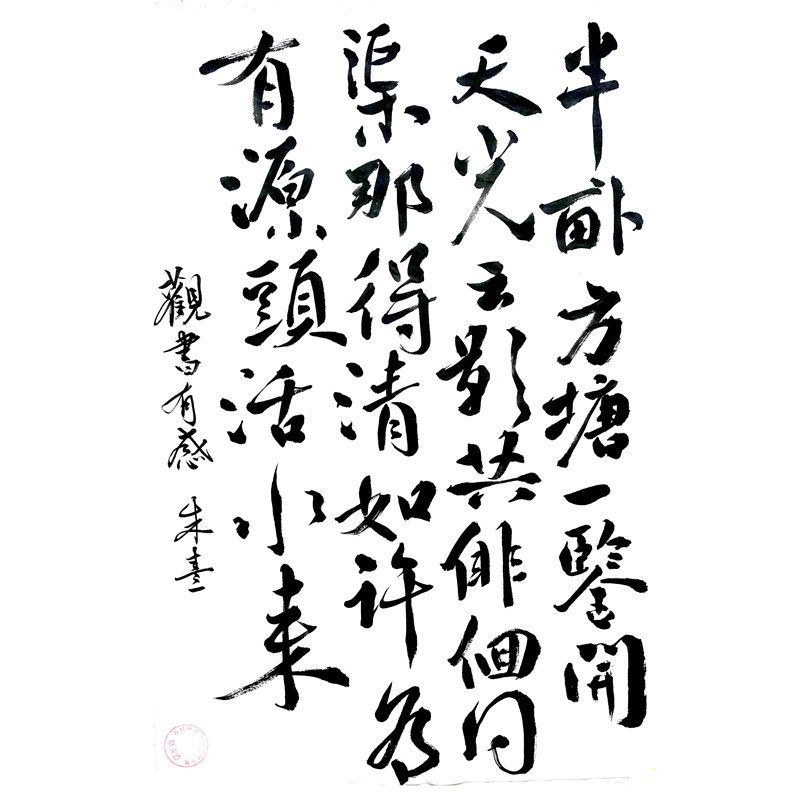 半畝方塘一鑒開
天光云影共徘徊问
渠那得清如许为
有源頭活水来
觀書有感 朱熹